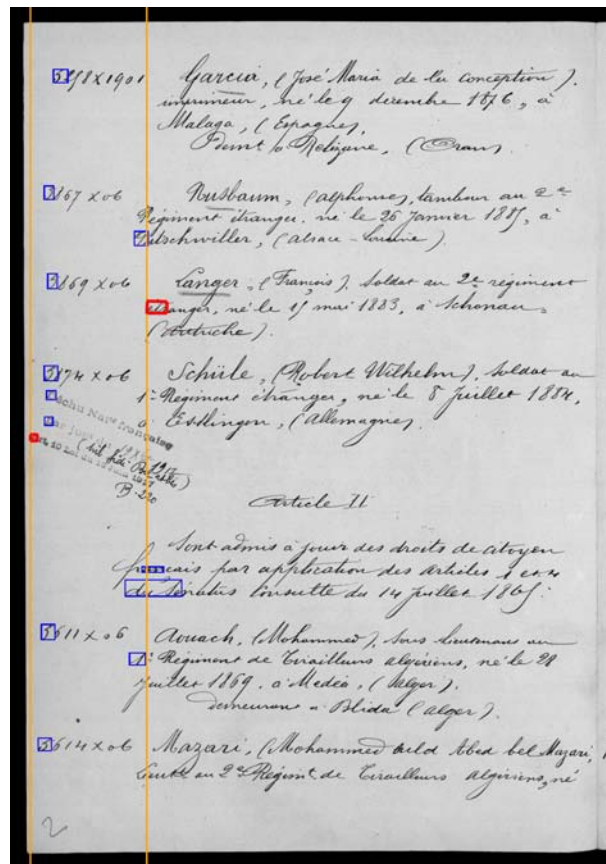 5898X1901 Garcia, (José Maria de la Conception),
imprimeur, né le 9 décembre 1876, à
Malaga, (Espagne),
Demt à Relizane, (Oran)
3867 X 06 Nusbaum, (Alphonse), tambour au 2e
Régiment étranger, né le 26 Janvier 1885, à
Bitschwiller, (Alsace-Lorraine).
3869 X 06 Langer, (François), soldat au 2e régiment
étranger, né le 15 mai 1883, à Schonau,
(Autriche).
3874 X 06 Schüle, (Robert Wilhelm), soldat au
1er Régiment étranger, né le 8 Juillet 1884,
à Esslingen, (Allemagne).
B. 220
Article II
Sont admis à jouir des droits de citoyen
français par application des articles 1 et 4
du Sénatus Consulte du 14 Juillet 1865:
5611 X 06 Aouach, (Mohammed), sous lieutenant au
1er Régiment de Tirailleurs algériens, né le 28
Juillet 1869, à Médéa, (Alger).
demeurant à Blida (Alger).
5614 X 06 Mazari, (Mohammed ould Abed bel Mazari,
Lieutt au 2e Régimt de Tirailleurs algériens, né
2